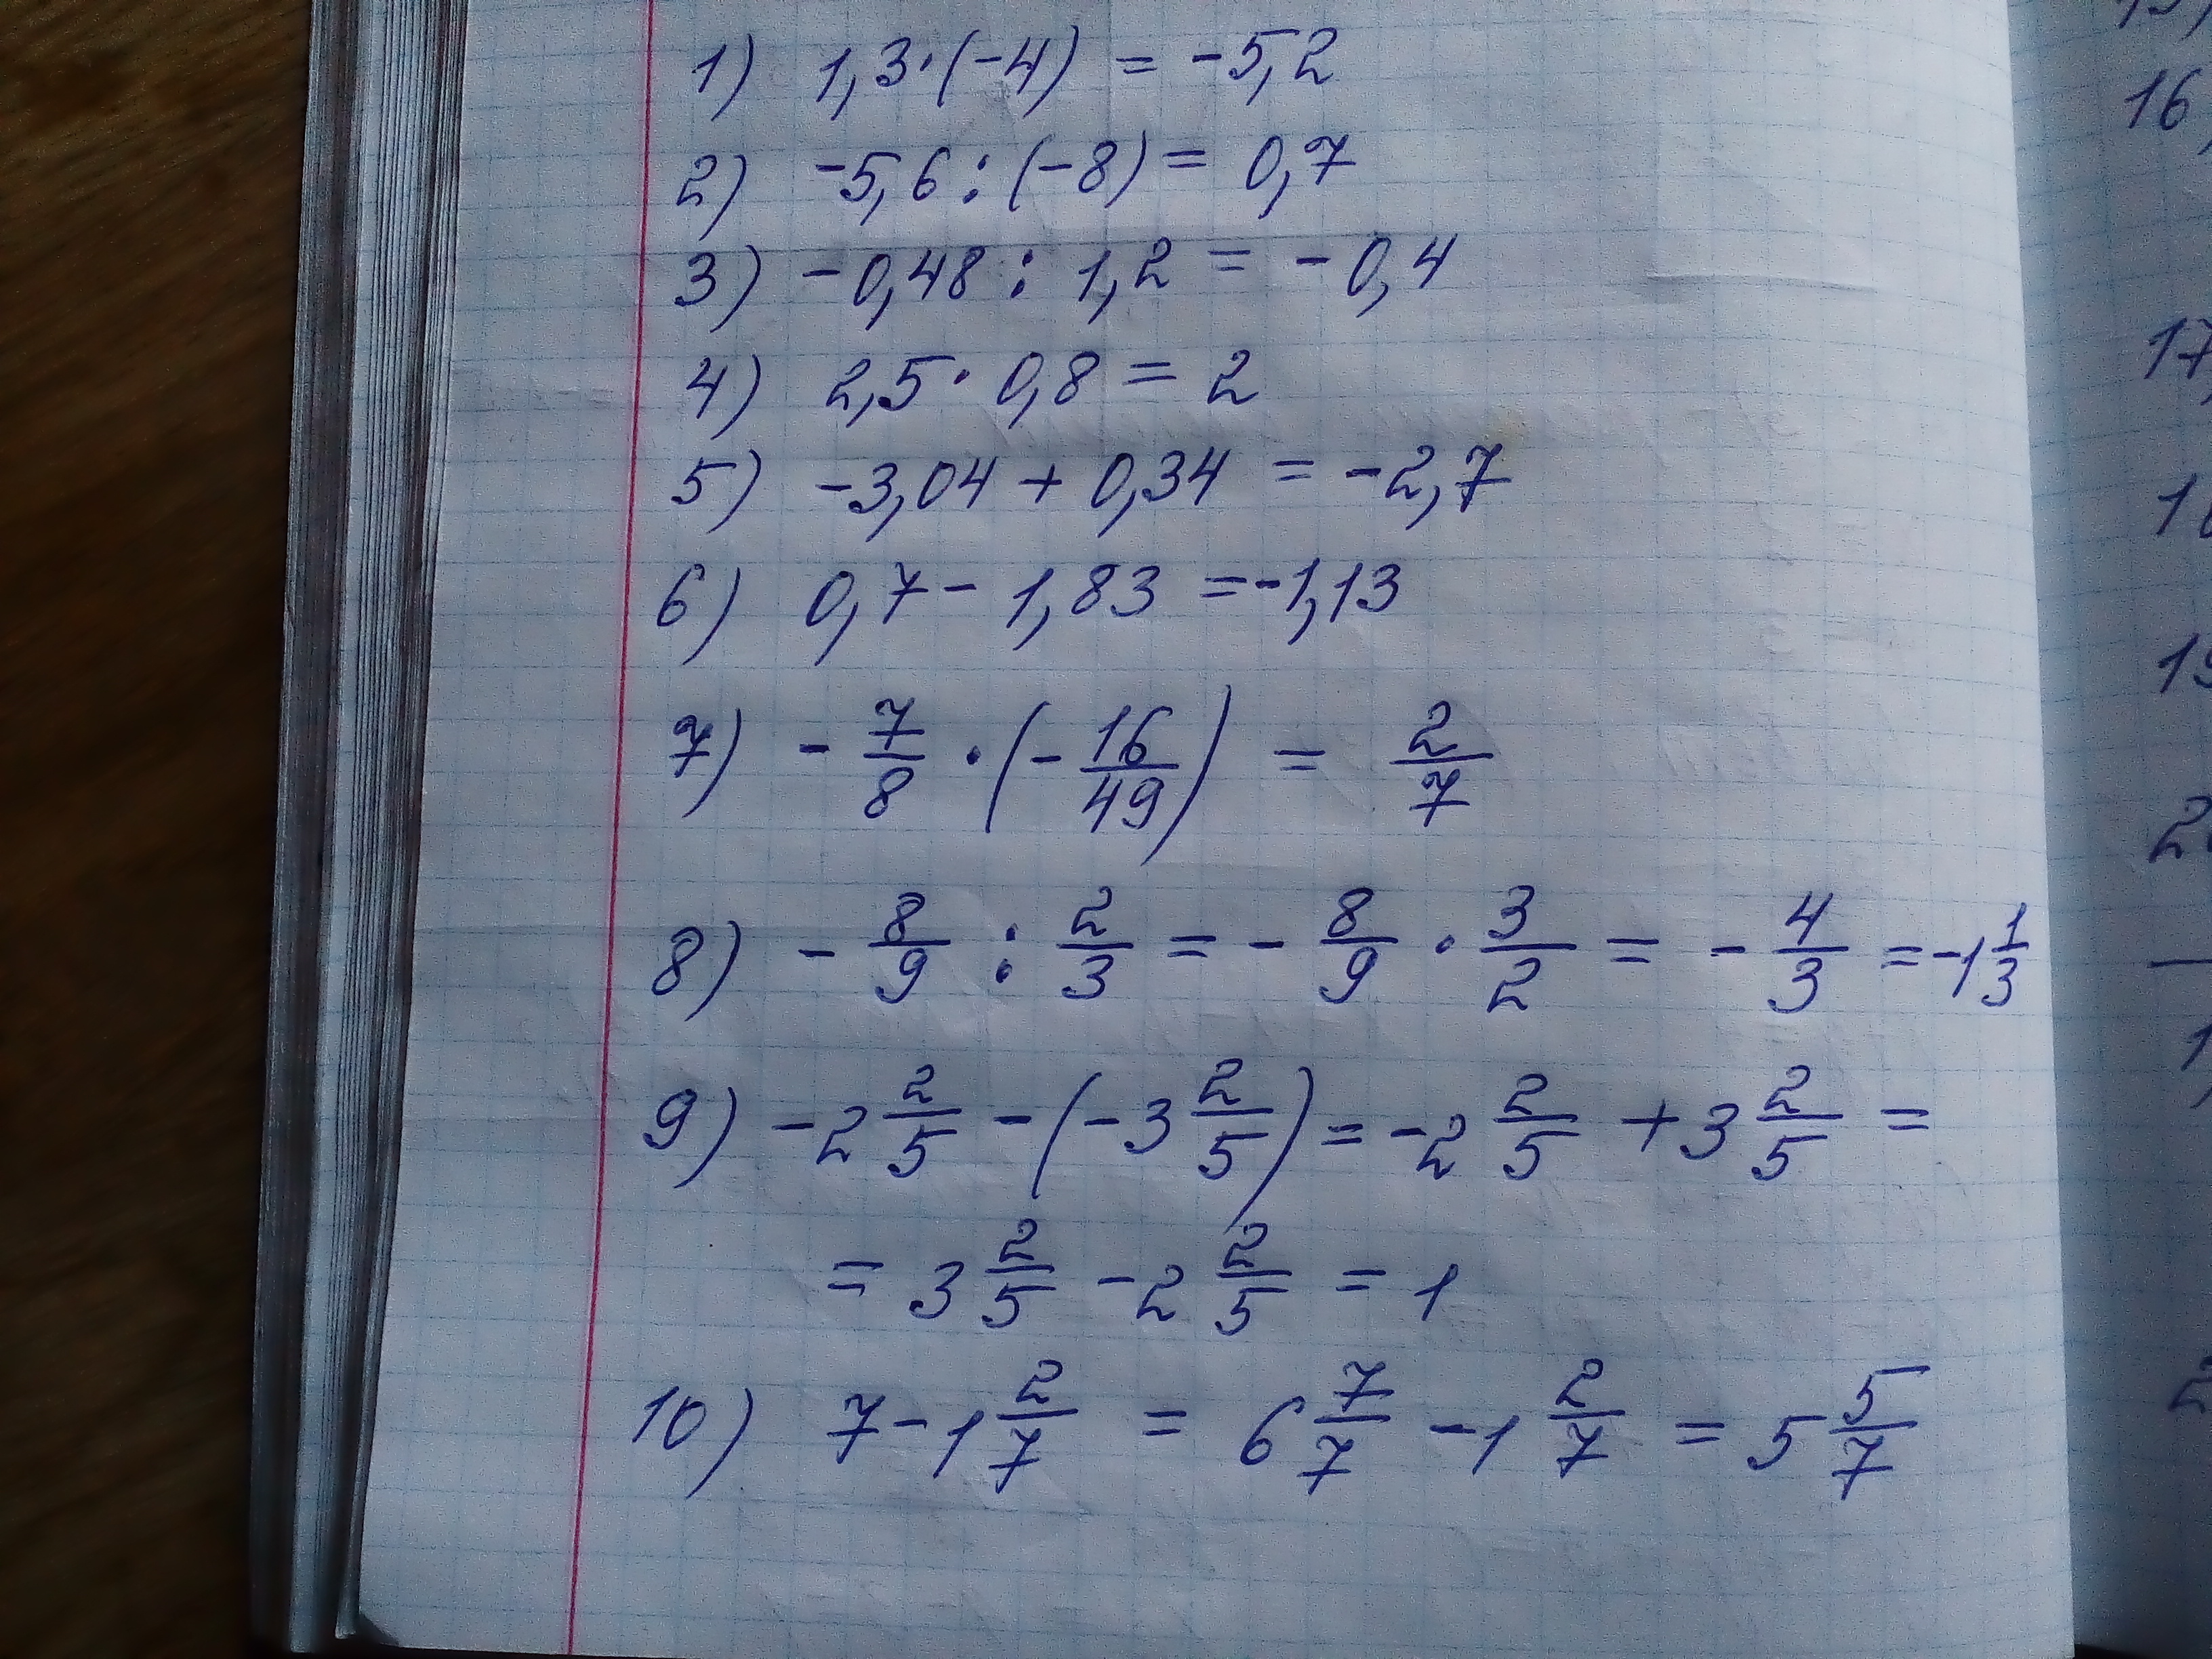 1) 1,3·(-4) = -5,2
2) -5,6 : (-8) = 0,7
3) -0,48 : 1,2 = -0,4
4) 2,5·0,8 = 2
5) -3,04 + 0,34 = -2,7
6) 0,7 - 1,83 = -1,13
7) - 7/8 · (- 16/49) = 2/7
8) - 8/9 : 2/3 = - 8/9 · 3/2 = - 4/3 = -1 1/3
9) -2 2/5 - (-3 2/5) = -2 2/5 + 3 2/5 =
= 3 2/5 - 2 2/5 = 1
10) 7 - 1 2/7 = 6 7/7 - 1 2/7 = 5 5/7
16,
17,